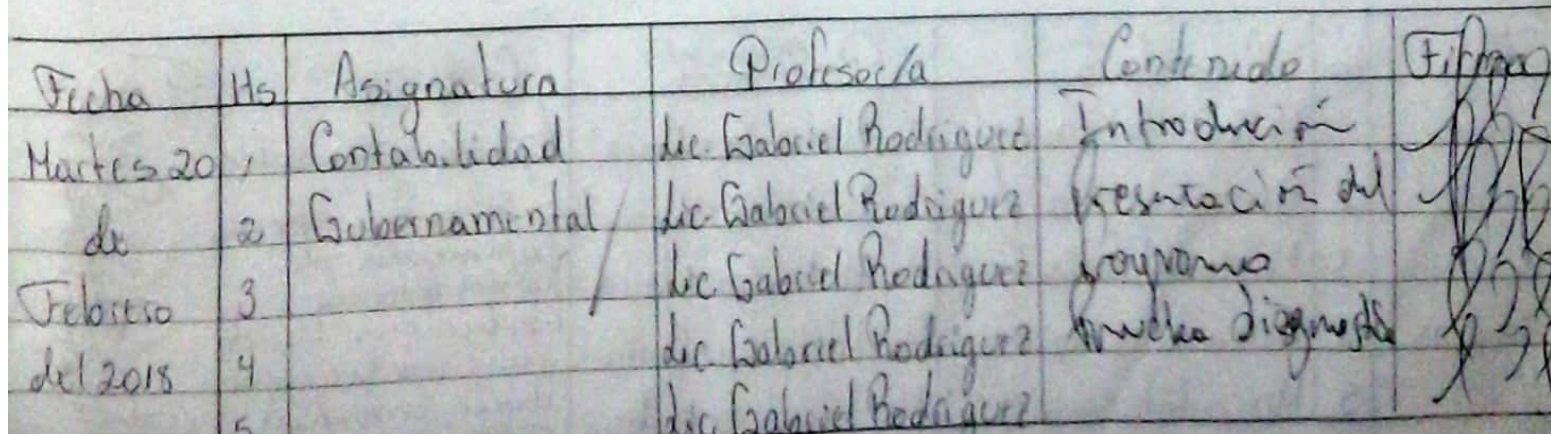 Fecha Hs Asignatura Profesor/a Contenido Firma
Martes 20 1 Contabilidad Lic. Gabriel Rodriguez Introducción
de 2 Gubernamental Lic. Gabriel Rodriguez Presentación del
Febrero 3 Lic. Gabriel Rodriguez programa
del 2018 4 Lic. Gabriel Rodriguez Prueba
5 Lic. Gabriel Rodriguez